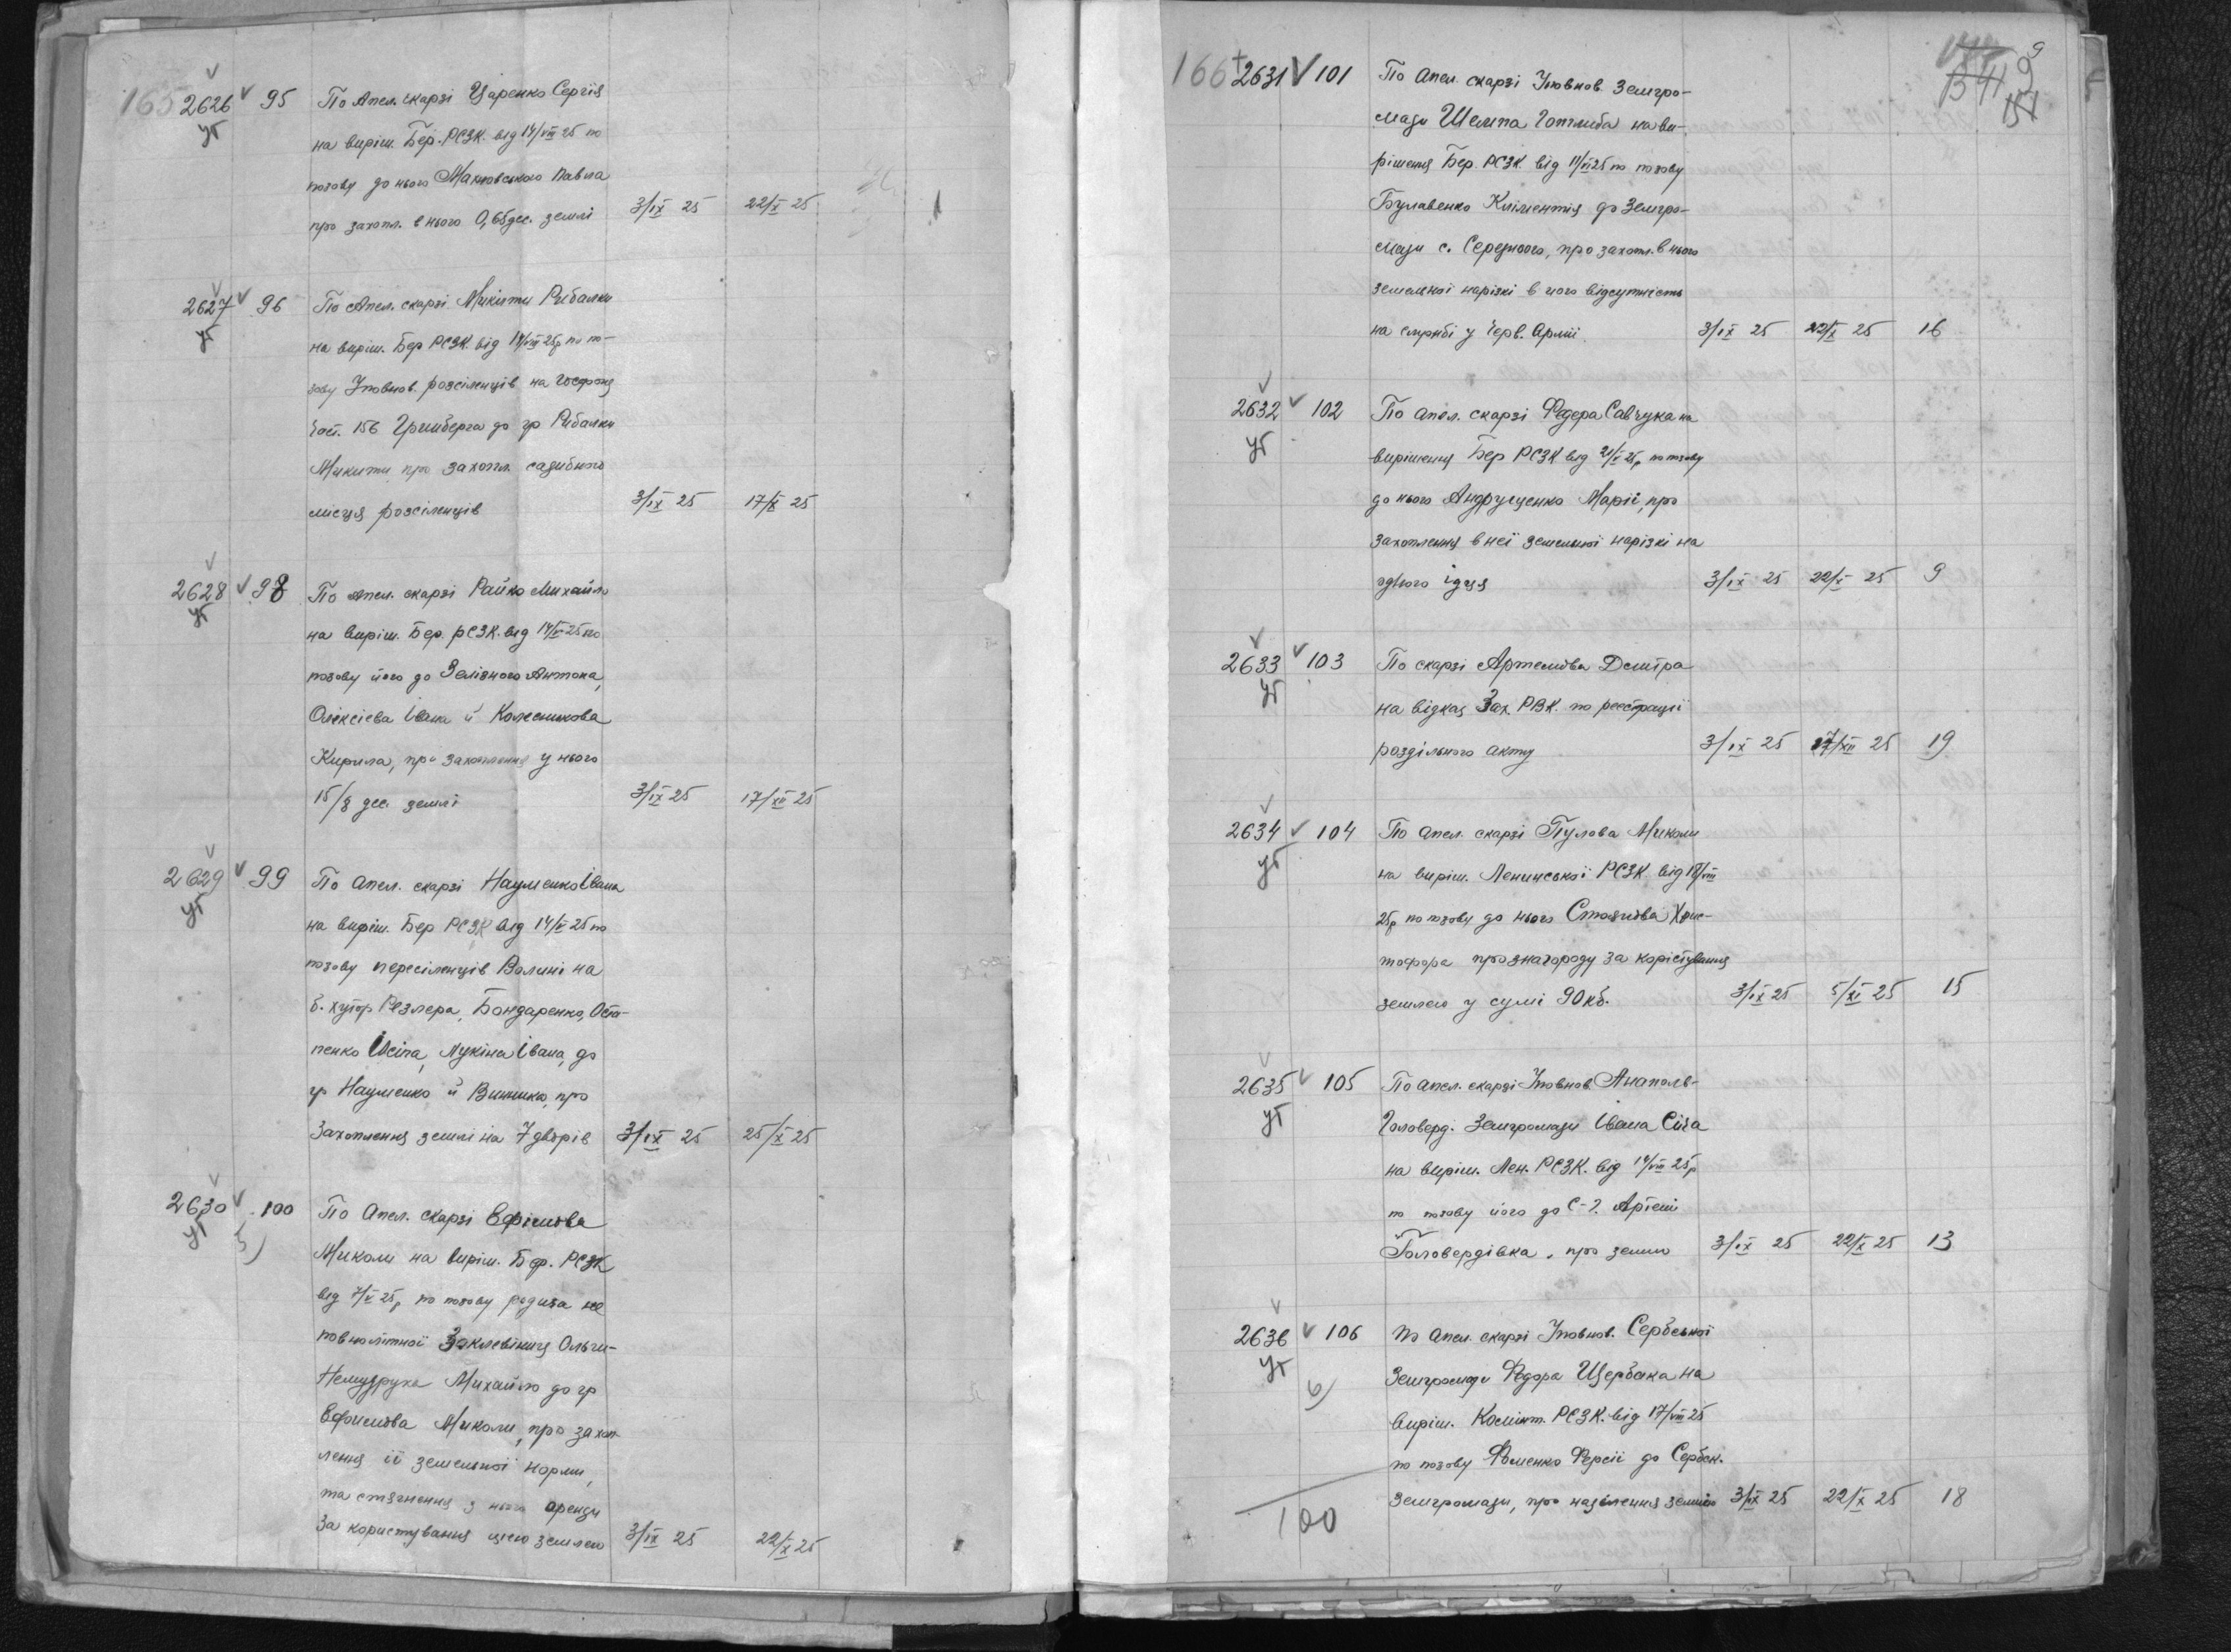 165 2626 95 По Апел. скарзі Царенко Сергія
на виріш. Бер. РСЗК. від 14/VIII 25 по
позову до нього Махновського Павла
про захопл. в нього 0,65 дес. землі 3/IX 25 22/X 25
2627 96 По Апел. скарзі Микити Рибалки
на виріш. Бер РСЗК від 14/VIII 25р по по-
зову Уповнов. розсіленців на Госфонд
156 Гринберга до гр Рибалки
Микити про захопл. садибного
місця розсіленців 3/IX 25 17/X 25
2628 98 По апел. скарзі Райко Михайло
на виріш. Бер. РСЗК. від 14/V 25 по
позову його до Зелізного Антона,
Олексієва Івана й Колесникова
Кирила, про захоплення у нього
15/8 дес. землі 3/IX 25 17/XII 25
2629 99 По апел. скарзі Науменко Івана
на виріш. Бер РСЗК від 14/V 25 по
позову пересіленців Волині на
б. хутор Резлера, Бондаренко, Оста-
пенко Йосіпа, Лукіна Івана, до
гр Науменко й Винника, про
Захоплення землі на 7 дворів 3/IX 25 25/X 25
2630 100 По Апел. скарзі Ефімова
5) Миколи на виріш. Бер. РСЗК
від 7/V 25р по позову родича не
повнолітної Заклевіниця Ольги-
Немудрука Михайло до гр
Ефимова Миколи, про захоп-
лення її земельної норми,
та стягнення з нього аренди
За користування цією землею 3/IX 25 22/X 25
9
166 2631 101 По Апел. скарзі Уповнов. Земгро-
мади Шемпа Готлиба на ви-
рішення Бер. РСЗК. від 11/VI 25 по позову
Булавенко Кліментія до Земгро-
мади с. Середнього, про захопл. в нього
земельної нарізкі в його відсутність
на службі у Черв. Армії. 3/IX 25 22/X 25 16
2632 102 По апел. скарзі Федера Савчука на
вирішення Бер РСЗК від 21/V 25р по позову
до нього Андрущенко Марії, про
захоплення в неї земельної нарізкі на
одного їдця 3/IX 25 22/X 25 9
2633 103 По скарзі Артемова Дмітра
на відказ Зах. РВК. по реєстрації
роздільного акту 3/IX 25 17/XII 25 19
2634 104 По апел. скарзі Пулова Миколи
на виріш. Ленинської РСЗК від 18/VIII
25р по позову до нього Стоянова Хрис-
тофора про знагороду за корістування
землею у сумі 90 кб. 3/IX 25 5/XI 25 15
2635 105 По апел. скарзі Уповнов. Анаполь-
Головерд. Земгромади Івана Січа
на виріш. Лен. РСЗК. від 14/VIII 25р
по позову його до С-г. Артілі
"Головердівка", про землю 3/IX 25 22/X 25 13
2636 106 По апел. скарзі Уповнов. Сербської
6) Земгромади Федора Щербака на
виріш. Комінт. РСЗК. від 17/VIII 25
по позову Фоменко Ферсії до Сербск.
земгромади, про наділення землею 3/IX 25 22/X 25 18
100